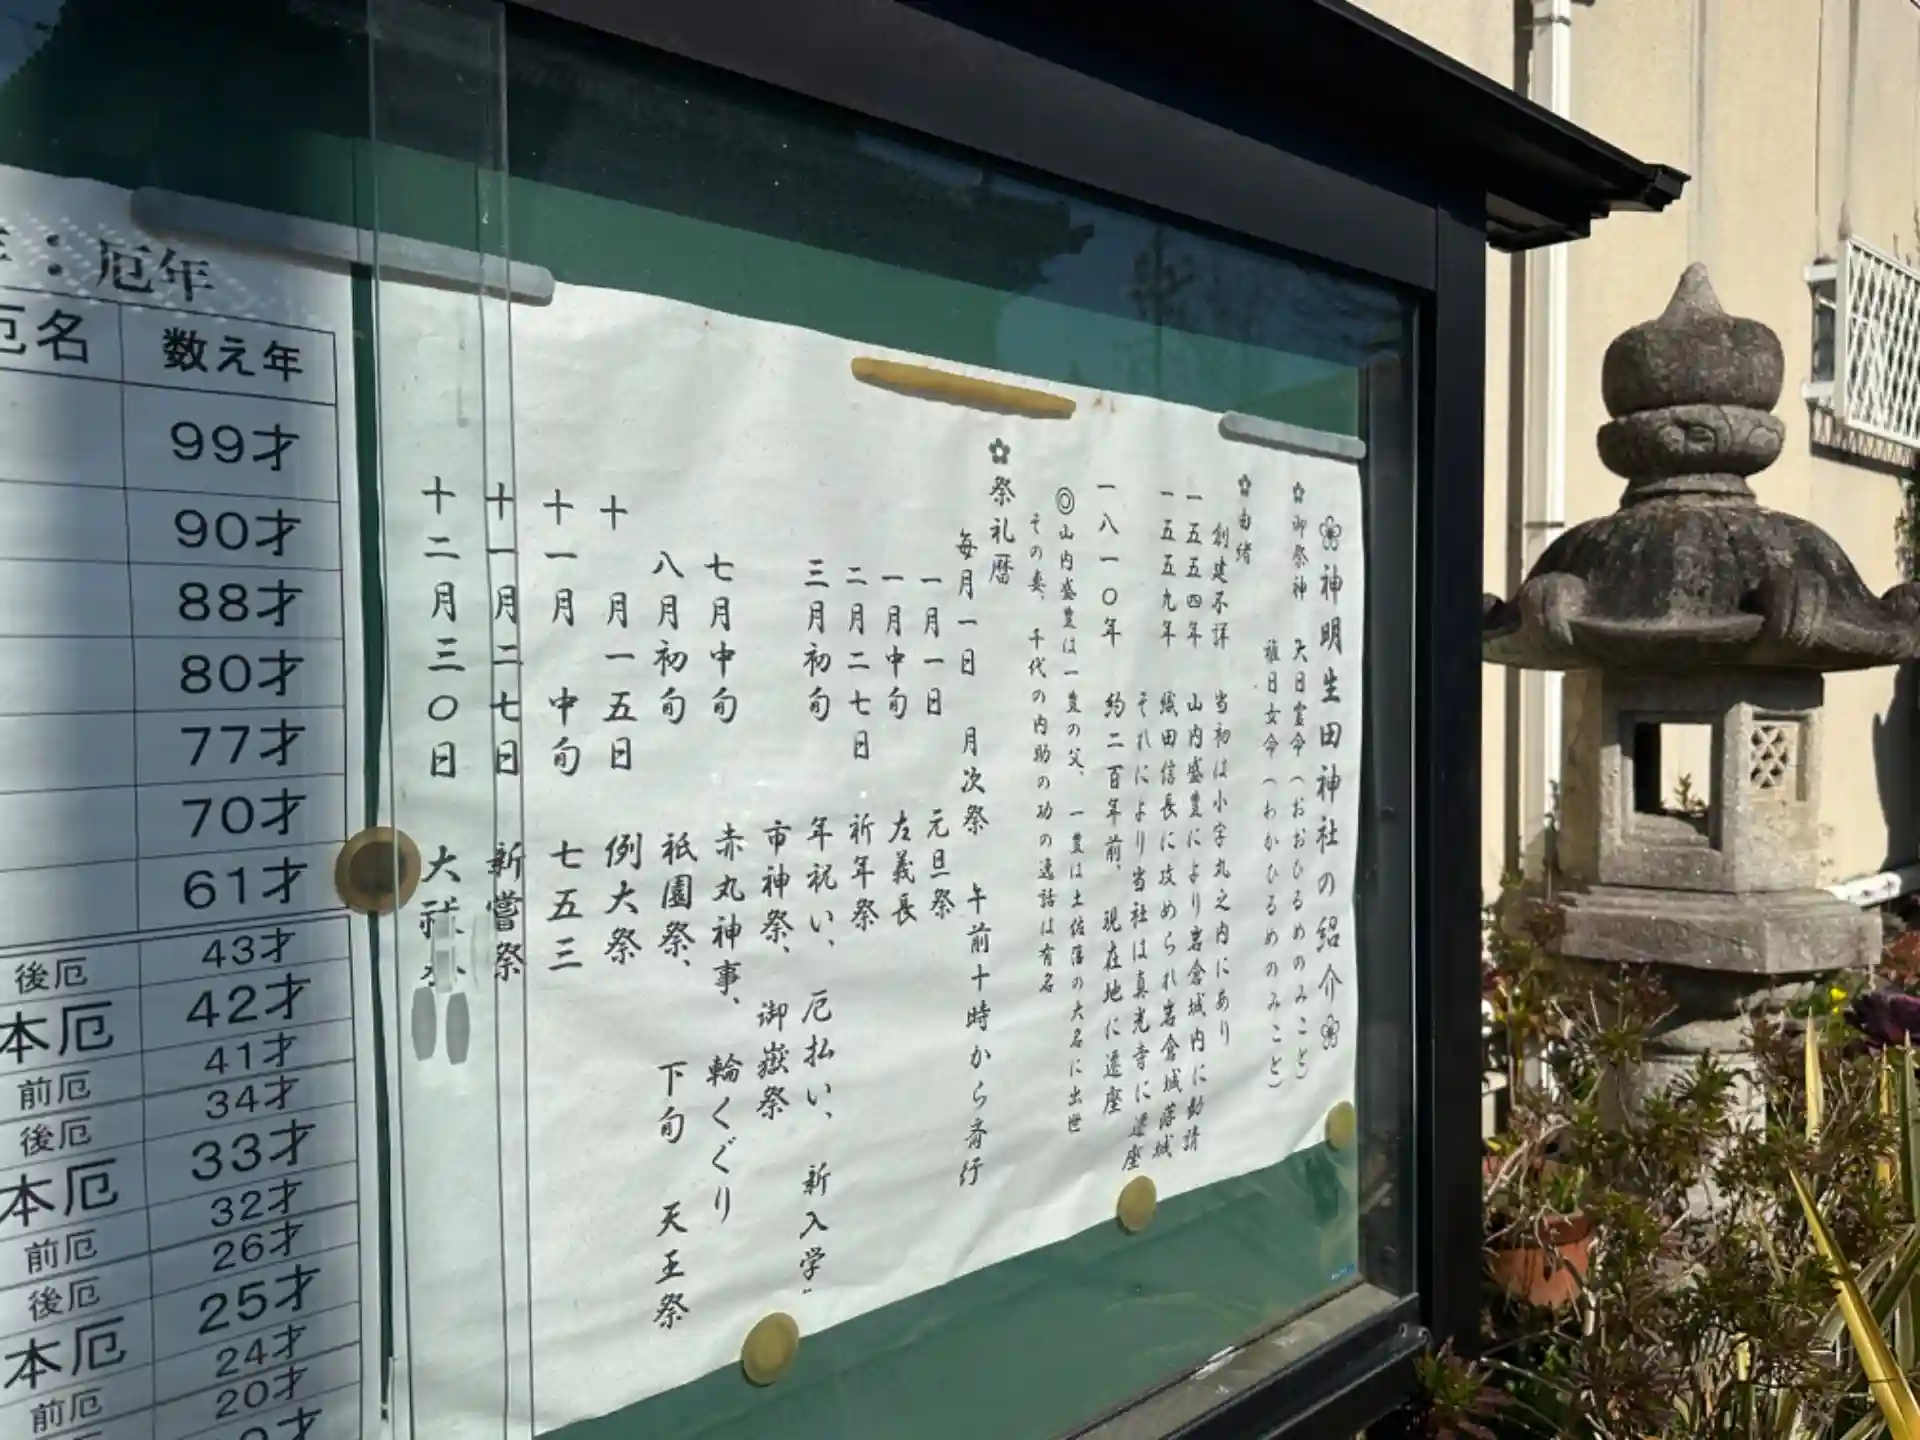 神明生田神社の紹介
御祭神 大日霊命(おおひるめのみこと)
稚日女命(わかひるめのみこと)
由緒
創建不詳 当初は小字丸之内にあり
一五五四年 山内盛豊により岩倉城内に勧請
一五五九年 織田信長に攻められ岩倉城落城
それにより当社は真光寺に遷座
一八一〇年 約二百年前、現在地に遷座
◎山内盛豊は一豊の父、一豊は土佐藩の大名に出世
その妻、千代の内助の功の逸話は有名
祭礼暦
毎月一日 月次祭 午前十時から斎行
一月一日 元旦祭
一月中旬 左義長
二月二七日 祈年祭
三月初旬 年祝い、厄払い、新入学
市神祭、御嶽祭
七月中旬 赤丸神事、輪くぐり
八月初旬 祇園祭、下旬 天王祭
十月一五日 例大祭
十一月 中旬 七五三
十一月二七日 新嘗祭
十二月三〇日 大祓
:厄年
厄名 数え年
99才
90才
88才
80才
77才
70才
61才
後厄 43才
本厄 42才
前厄 41才
後厄 34才
本厄 33才
前厄 32才
後厄 26才
本厄 25才
前厄 24才
20才